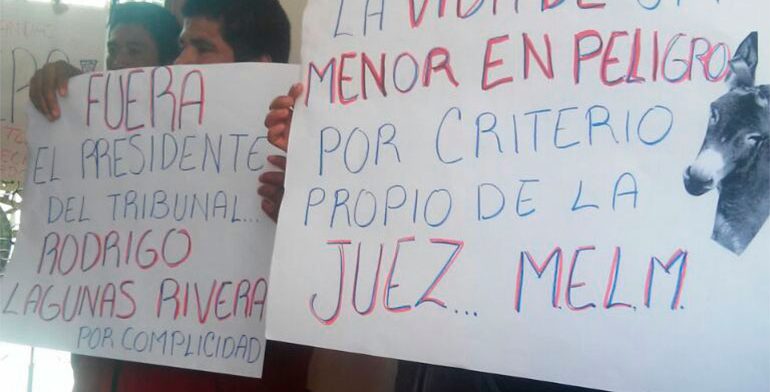 FUERA
EL PRESIDENTE
DEL TRIBUNAL...
RODRIGO
LAGUNAS RIVERA
POR COMPLICIDAD
LA VIDA DE
MENOR EN PELIGRO
POR CRITERIO
PROPIO DE LA
JUEZ... M.E.L.M.